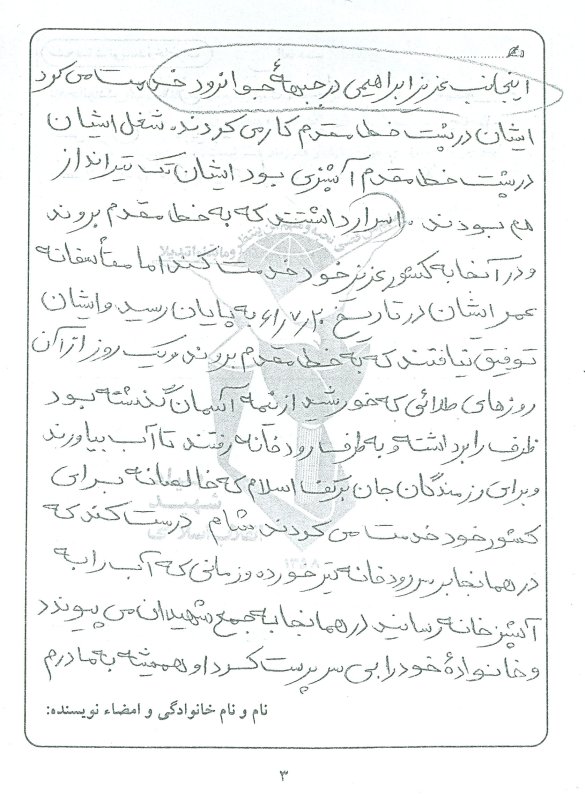 اینجانب عزیز ابراهیمی در جبههٔ جوانرود خدمت می کرد
ایشان در پشت خط مقدم کار می کردند. شغل ایشان
در پشت خط مقدم آشپزی بود ایشان تک تیرانداز
هم بودند. اسرار داشتند که به خط مقدم بروند
و در آنجا به کشور عزیز خود خدمت کند اما متأسفانه
عمر ایشان در تاریخ ۶۱/۷/۲۰ به پایان رسید و ایشان
توفیق نیافتند که به خط مقدم بروند و یک روز از آن
روزهای طلائی که خورشید از نیمه آسمان گذشته بود
ظرف را برداشته و به طرف رودخانه رفتند تا آب بیاورند
و برای رزمندگان جان برکف اسلام که خالصانه برای
کشور خود خدمت می کردند شام درست کند که
در همانجا بر سر رودخانه تیر خورده و زمانی که آب را به
آشپزخانه رسانید در همانجا به جمع شهیدان می پیوندد
و خانوادهٔ خود را بی سرپرست کرد او همیشه به مادرم
نام و نام خانوادگی و امضاء نویسنده:
۳